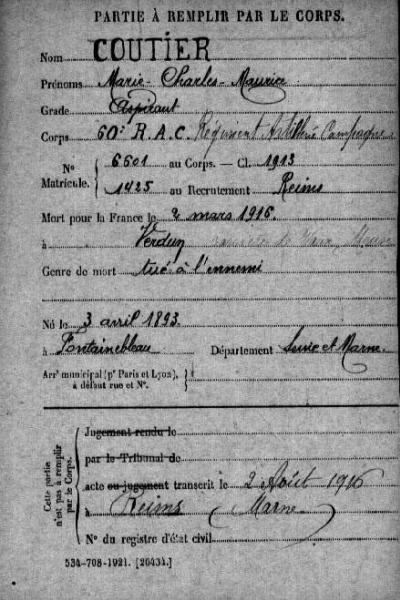 PARTIE À REMPLIR PAR LE CORPS.
Nom COUTIER
Prénoms Marie-Charles-Maurice
Grade Aspirant
Corps 60e R.A.C Régiment Artillerie Campagne
Nº Matricule. { 6601 au Corps. — Cl. 1913
1425 au Recrutement Reims
Mort pour la France le 2 mars 1916.
à Verdun de Vaux, Meuse
Genre de mort tué à l'ennemi
Né le 3 avril 1893.
à Fontainebleau Département Seine et Marne.
Arrt municipal (pr Paris et Lyon), à défaut rue et Nº. }
Cette partie n'est pas à remplir par le Corps.
Jugement rendu le
par le Tribunal de
acte ou jugement transcrit le 2 Août 1916
à Reims (Marne)
Nº du registre d'état civil
534-708-1921. [26434.]